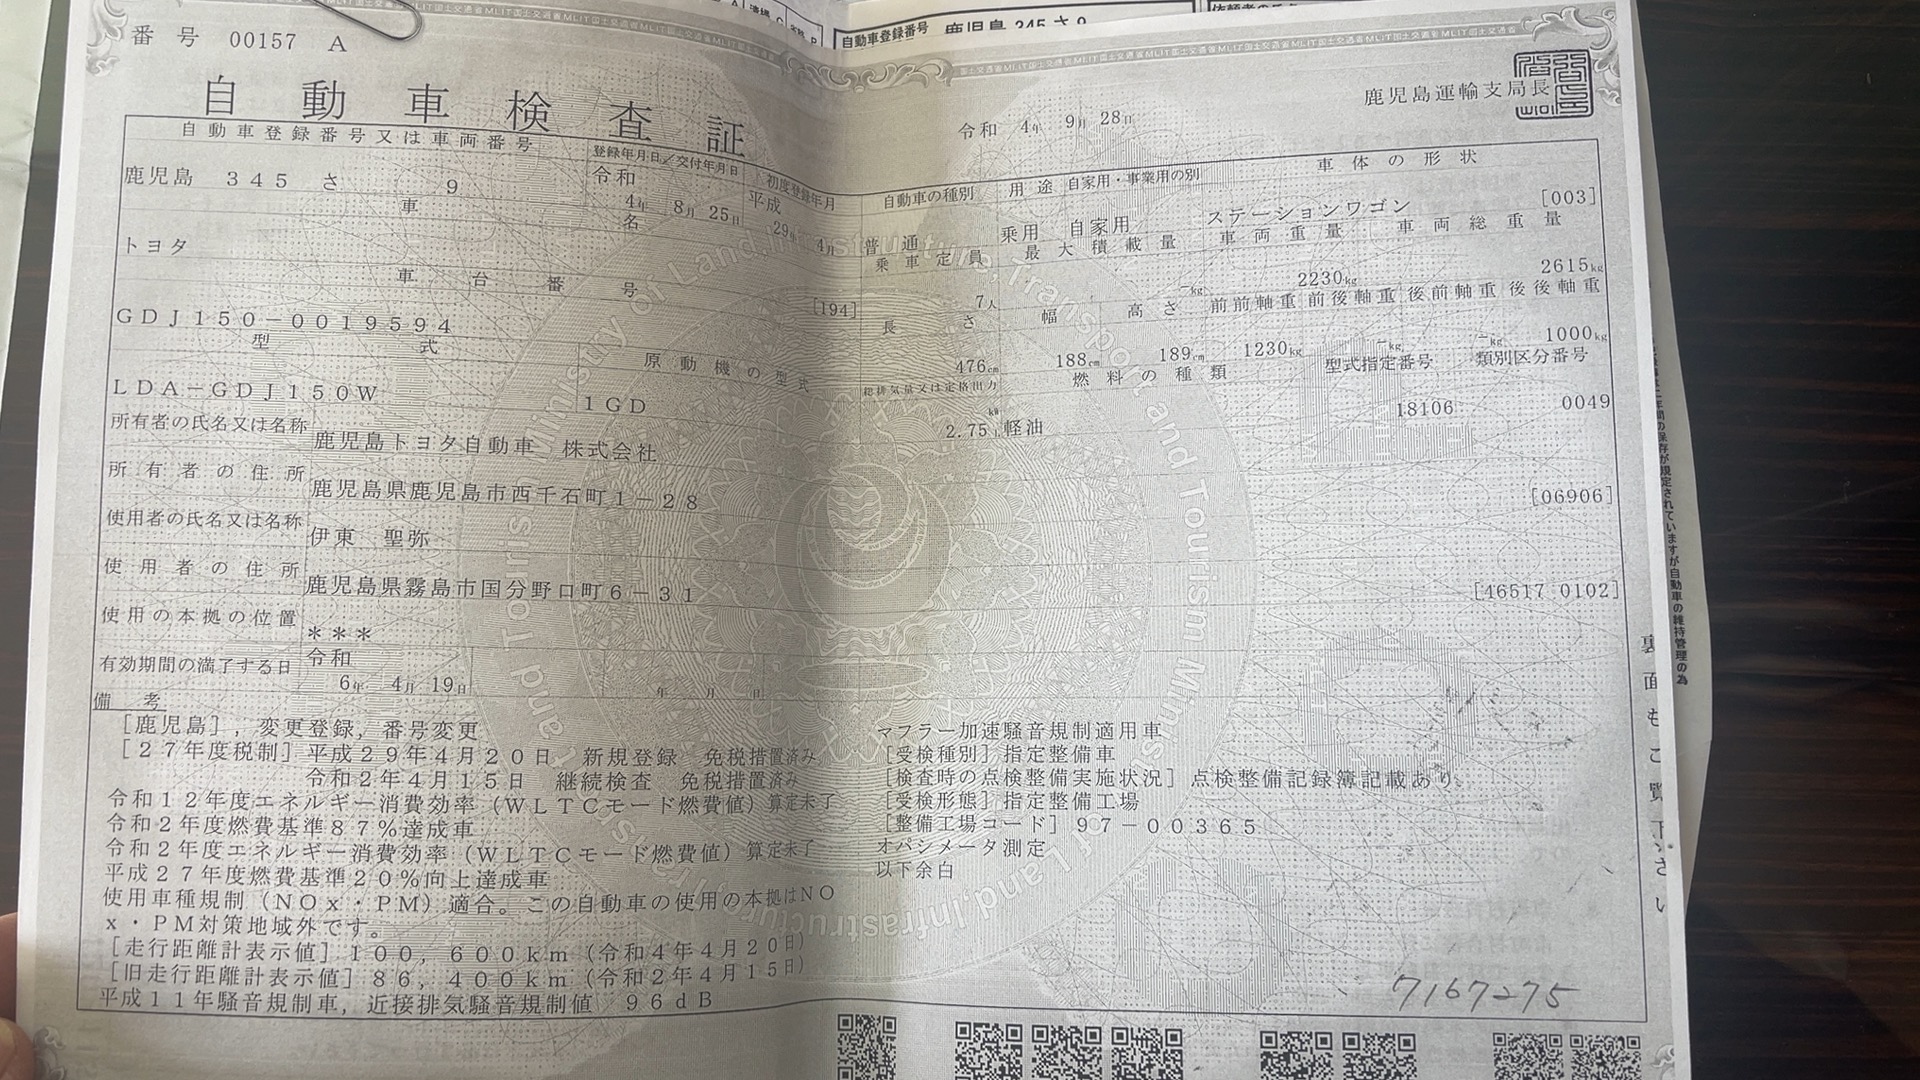 自動車登録番号 鹿児島 345 さ 9
番号 00157 A
自動車検査証
令和 4年 9月 28日
鹿児島運輸支局長
自動車登録番号又は車両番号 登録年月日/交付年月日 初度登録年月 自動車の種別 用途 自家用・事業用の別 車体の形状
鹿児島 345 さ 9 令和 4年 8月 25日 平成 29年 4月 普通 乗用 自家用 ステーションワゴン [003]
車名 乗車定員 最大積載量 車両重量 車両総重量
トヨタ [194] 7人 -kg 2230kg 2615kg
車台番号 長さ 幅 高さ 前前軸重 前後軸重 後前軸重 後後軸重
GDJ150-0019594 476cm 188cm 189cm 1230kg -kg -kg 1000kg
型式 原動機の型式 総排気量又は定格出力 燃料の種類 型式指定番号 類別区分番号
LDA-GDJ150W 1GD 2.75 kW L 軽油 18106 0049
所有者の氏名又は名称 鹿児島トヨタ自動車 株式会社
所有者の住所 鹿児島県鹿児島市西千石町1-28 [06906]
使用者の氏名又は名称 伊東 聖弥
使用者の住所 鹿児島県霧島市国分野口町6-31 [46517 0102]
使用の本拠の位置 ***
有効期間の満了する日 令和 6年 4月 19日 年 月 日
備考
[鹿児島],変更登録,番号変更
[27年度税制]平成29年4月20日 新規登録 免税措置済み
令和2年4月15日 継続検査 免税措置済み
令和12年度エネルギー消費効率(WLTCモード燃費値)算定未了
令和2年度燃費基準87%達成車
令和2年度エネルギー消費効率(WLTCモード燃費値)算定未了
平成27年度燃費基準20%向上達成車
使用車種規制(NOx・PM)適合。この自動車の使用の本拠はNO
x・PM対策地域外です。
[走行距離計表示値]100,600km(令和4年4月20日)
[旧走行距離計表示値]86,400km(令和2年4月15日)
平成11年騒音規制車,近接排気騒音規制値 96dB
マフラー加速騒音規制適用車
[受検種別]指定整備車
[検査時の点検整備実施状況]点検整備記録簿記載あり
[受検形態]指定整備工場
[整備工場コード]97-00365
オパシメータ測定
以下余白
7167275
裏面もご覧下さい